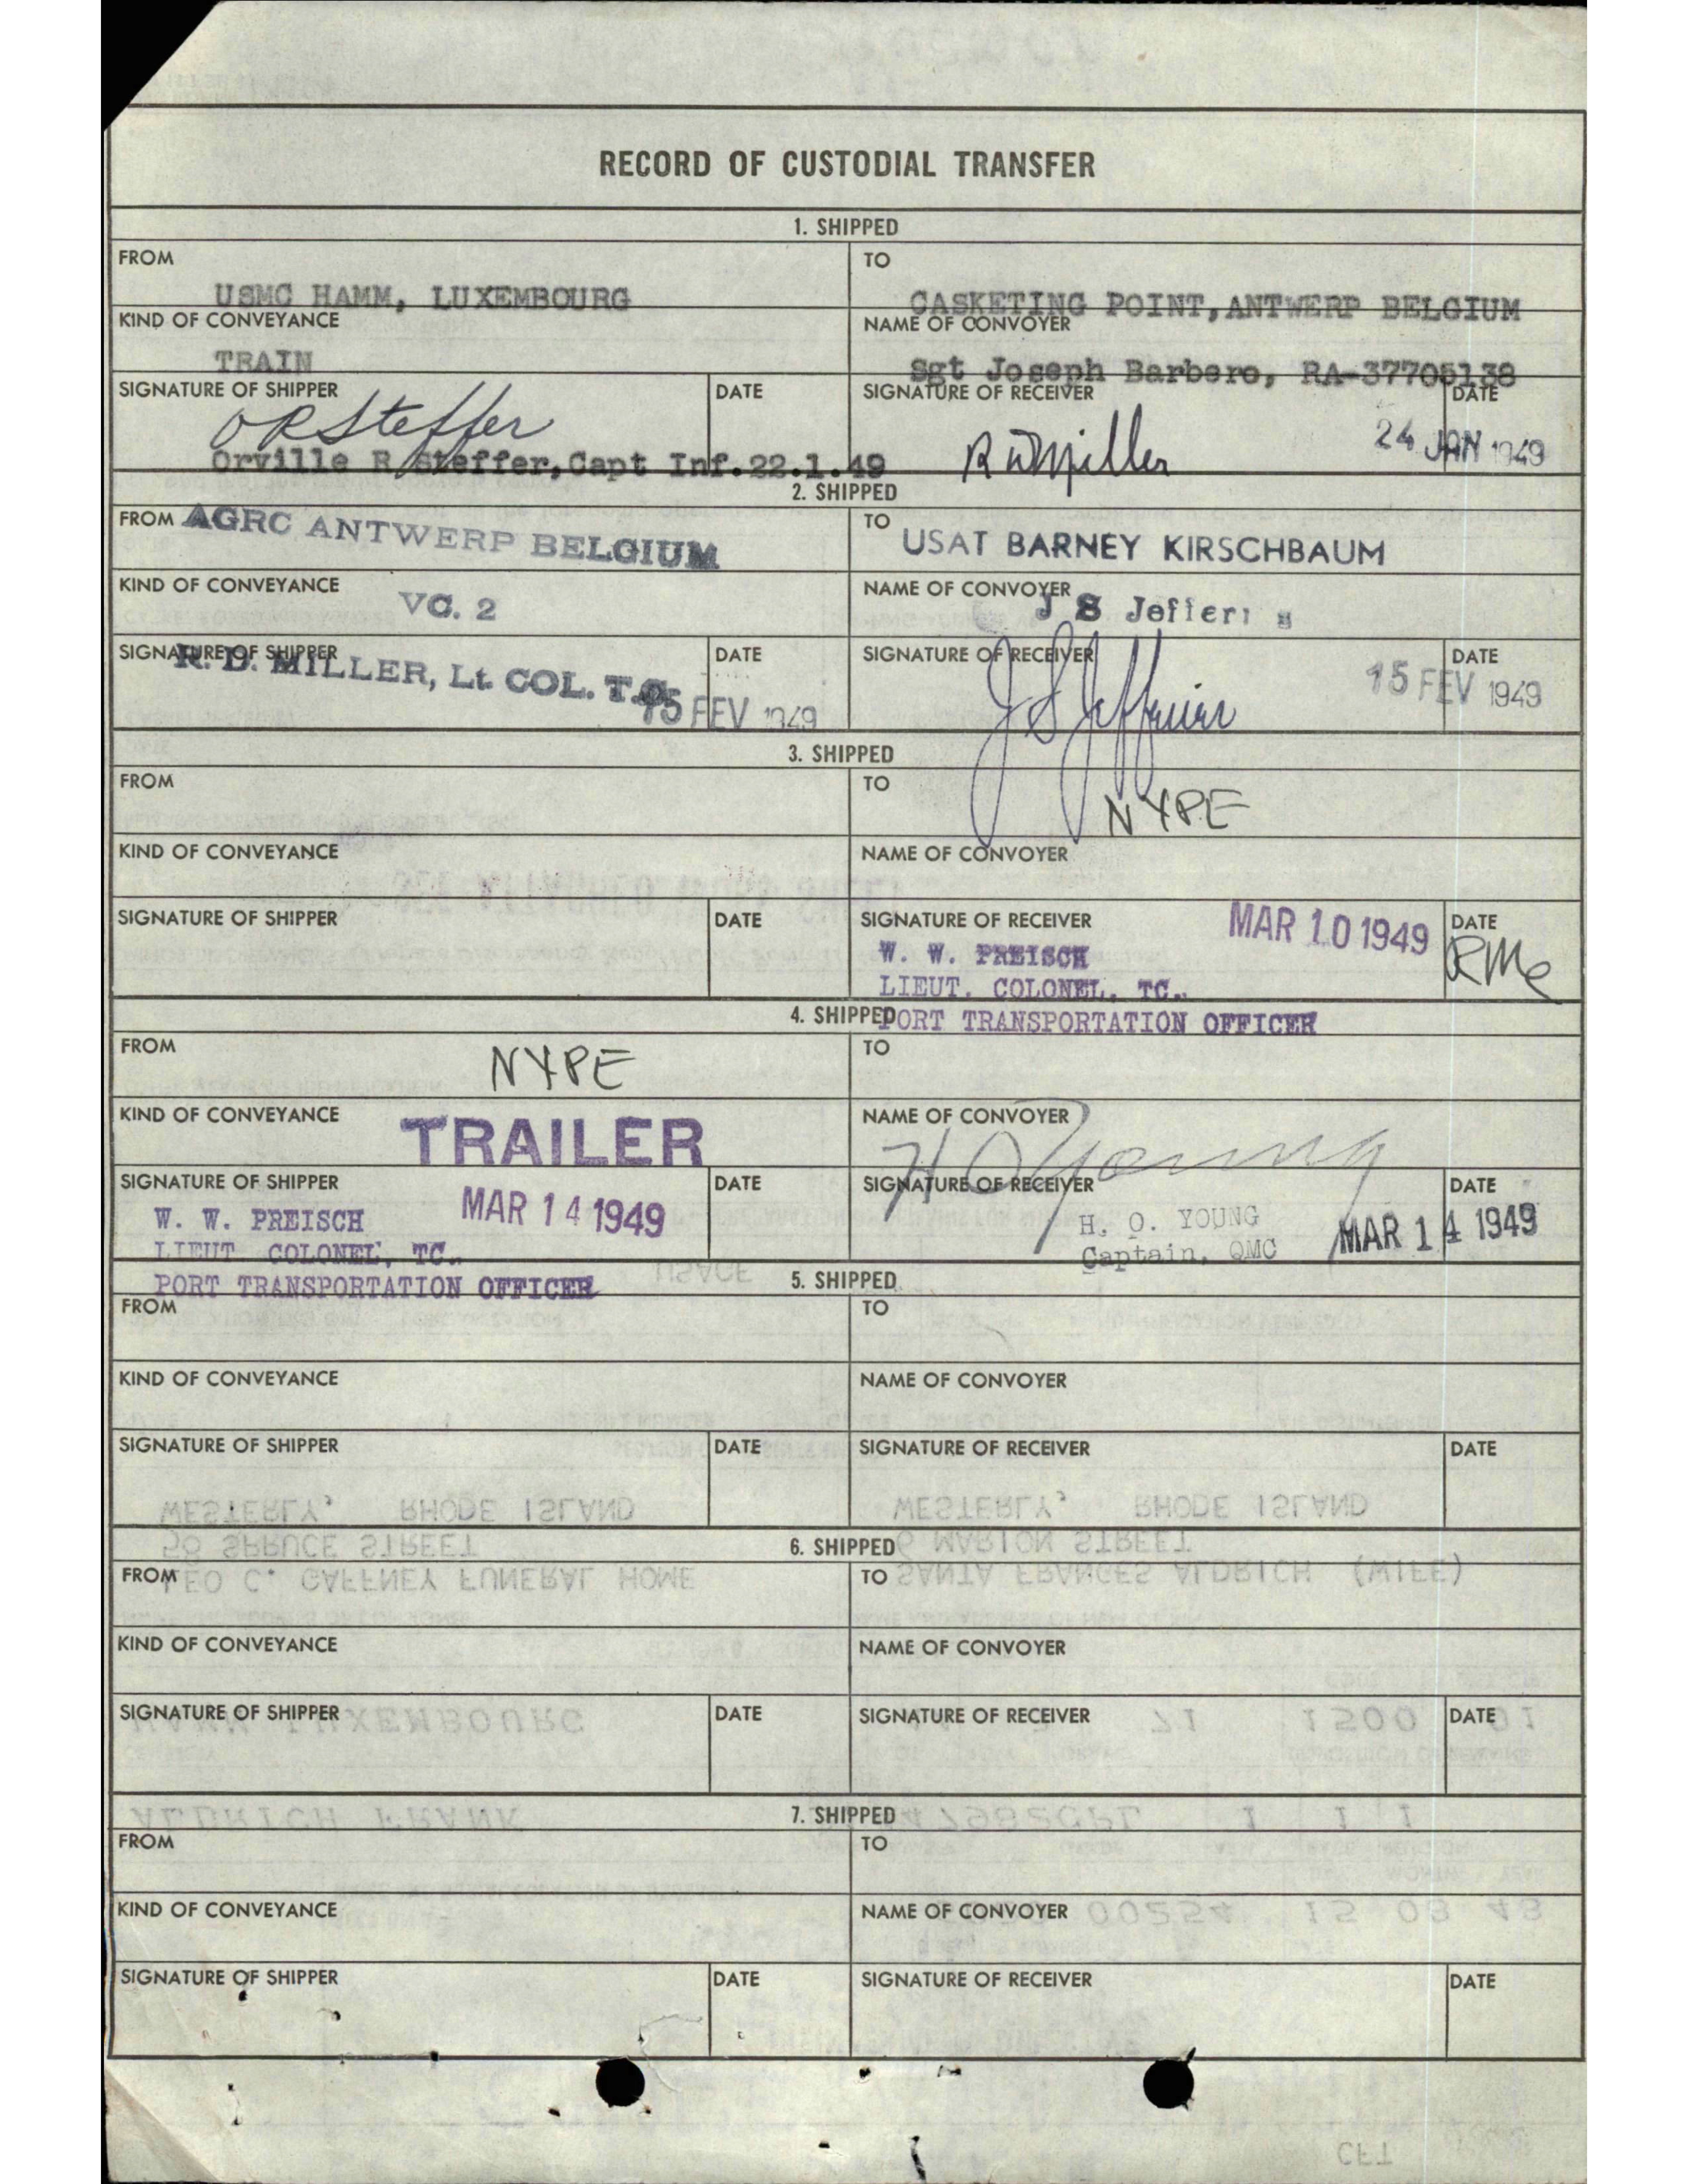 RECORD OF CUSTODIAL TRANSFER
1. SHIPPED
FROM
USMC HAMM, LUXEMBOURG
TO
CASKETING POINT, ANTWERP BELGIUM
KIND OF CONVEYANCE
TRAIN
NAME OF CONVOYER
Sgt Joseph Barbero, RA-37705138
SIGNATURE OF SHIPPER
DATE
O R Steffer
Orville R Steffer, Capt Inf. 22.1.49
SIGNATURE OF RECEIVER
DATE
R D Miller
24 JAN 1949
2. SHIPPED
FROM AGRC ANTWERP BELGIUM
TO
USAT BARNEY KIRSCHBAUM
KIND OF CONVEYANCE
VC. 2
NAME OF CONVOYER
J S Jefferi s
SIGNATURE OF SHIPPER
DATE
R. D. MILLER, Lt. COL. T.C.
15 FEV 1949
SIGNATURE OF RECEIVER
DATE
15 FEV 1949
3. SHIPPED
FROM
TO
NYPE
KIND OF CONVEYANCE
NAME OF CONVOYER
SIGNATURE OF SHIPPER
DATE
SIGNATURE OF RECEIVER
MAR 10 1949
DATE
W. W. PREISCH
LIEUT. COLONEL, TC.
PORT TRANSPORTATION OFFICER
4. SHIPPED
FROM
NYPE
TO
KIND OF CONVEYANCE
TRAILER
NAME OF CONVOYER
H O Young
SIGNATURE OF SHIPPER
DATE
MAR 14 1949
W. W. PREISCH
LIEUT COLONEL, TC.
PORT TRANSPORTATION OFFICER
SIGNATURE OF RECEIVER
DATE
H. O. YOUNG
Captain, QMC
MAR 14 1949
5. SHIPPED
FROM
TO
KIND OF CONVEYANCE
NAME OF CONVOYER
SIGNATURE OF SHIPPER
DATE
SIGNATURE OF RECEIVER
DATE
6. SHIPPED
FROM
TO
KIND OF CONVEYANCE
NAME OF CONVOYER
SIGNATURE OF SHIPPER
DATE
SIGNATURE OF RECEIVER
DATE
7. SHIPPED
FROM
TO
KIND OF CONVEYANCE
NAME OF CONVOYER
SIGNATURE OF SHIPPER
DATE
SIGNATURE OF RECEIVER
DATE